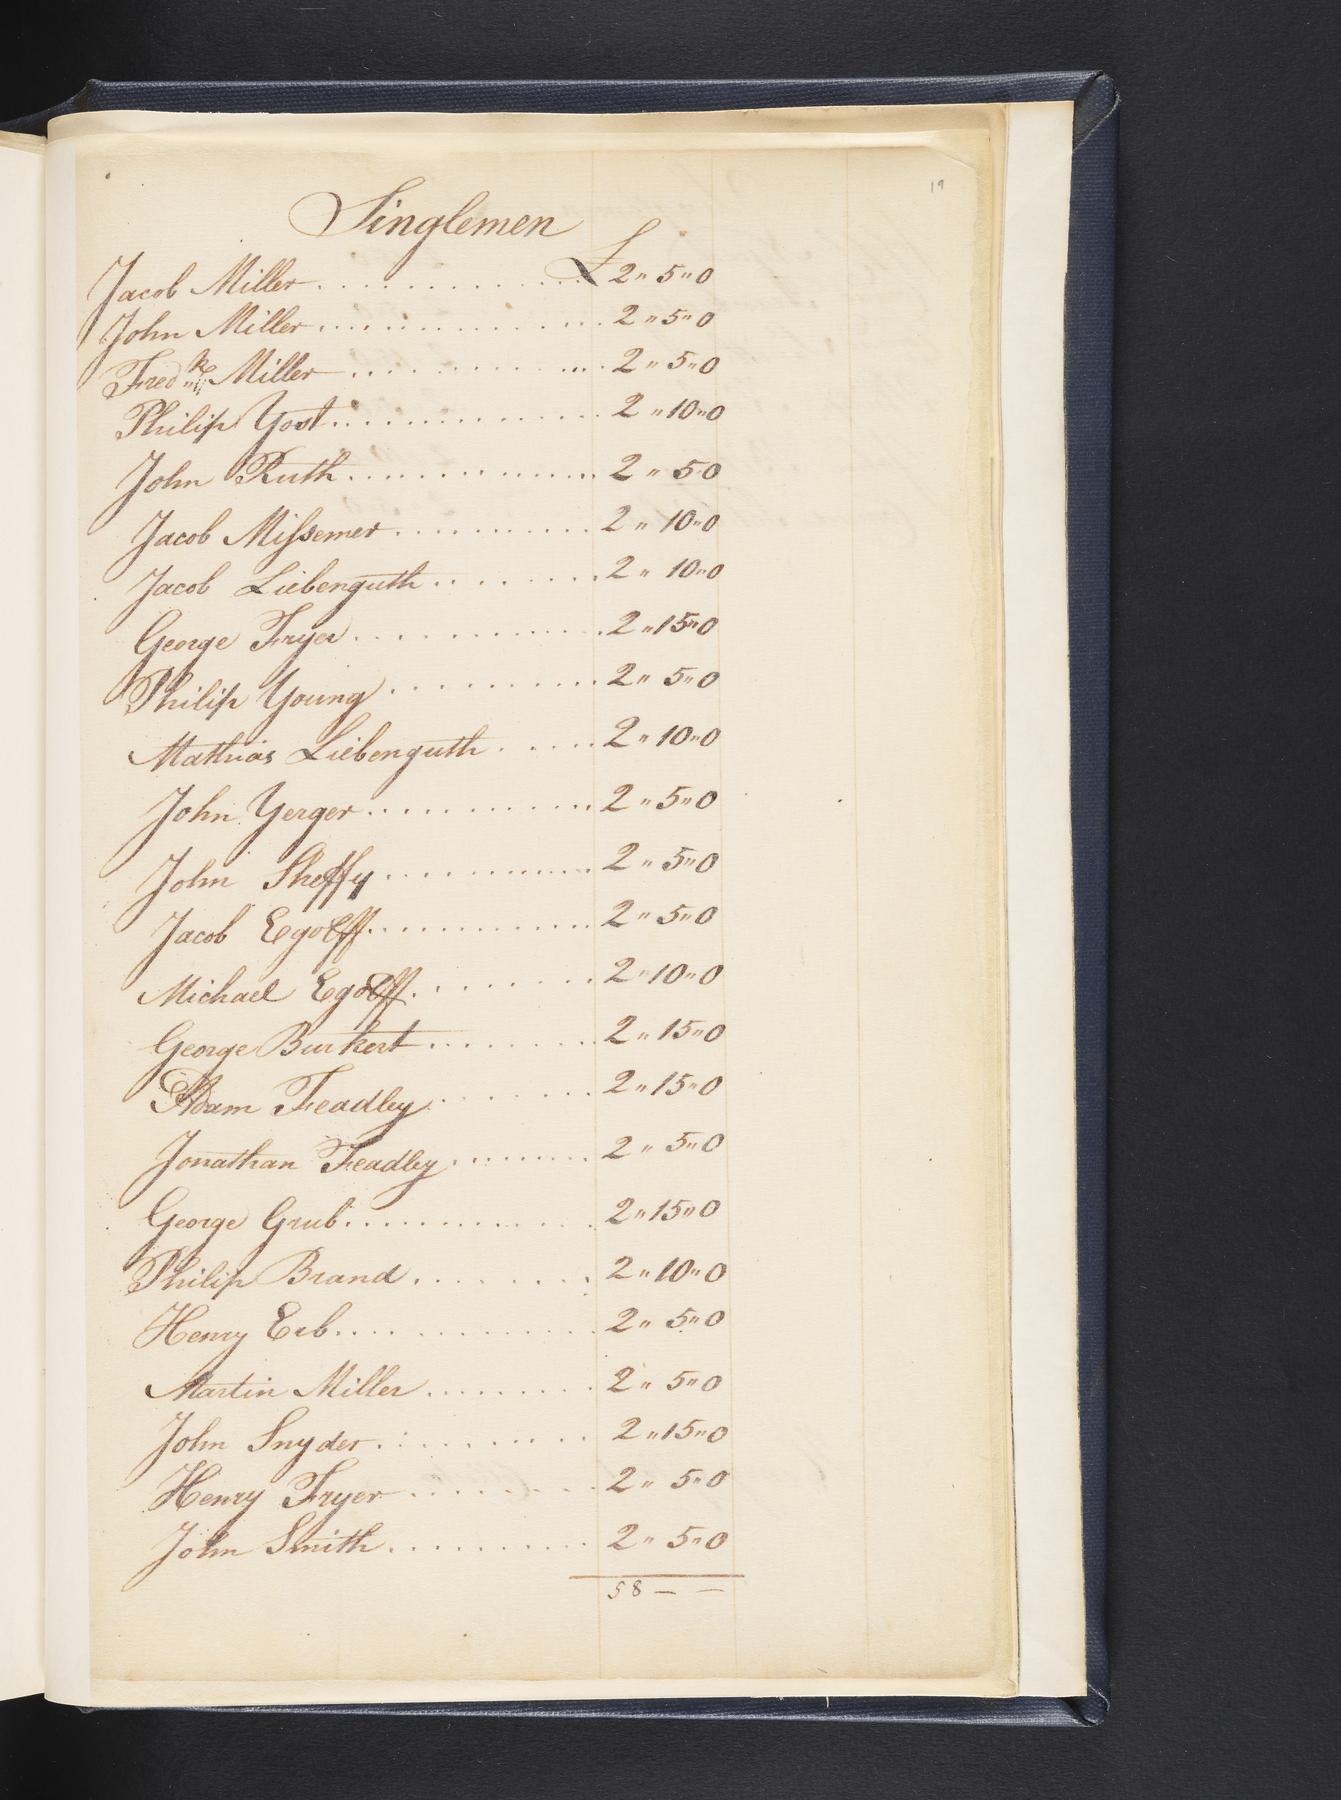 19
Singlemen
Jacob Miller . . . . . . . . . . . . £ 2 " 5 " 0
John Miller . . . . . . . . . . . . 2 " 5 " 0
Fredk Miller . . . . . . . . . . . . 2 " 5 " 0
Philip Yost . . . . . . . . . . . . 2 " 10 " 0
John Ruth . . . . . . . . . . . . 2 " 5 0
Jacob Missemer . . . . . . . . . . 2 " 10 " 0
Jacob Liebenguth . . . . . . . . 2 " 10 " 0
George Fryer . . . . . . . . . . . 2 " 15 " 0
Philip Young . . . . . . . . . . 2 " 5 " 0
Mathias Liebenguth . . . . . 2 " 10 " 0
John Yerger . . . . . . . . . . . . 2 " 5 " 0
John Sheffy . . . . . . . . . . . . 2 " 5 " 0
Jacob Egolff . . . . . . . . . . . . 2 " 5 " 0
Michael Egolff . . . . . . . . . 2 " 10 " 0
George Burkert . . . . . . . . . 2 " 15 " 0
Adam Feadley . . . . . . . . 2 " 15 " 0
Jonathan Feadley . . . . . . . . 2 " 5 " 0
George Grub . . . . . . . . . . . . 2 " 15 " 0
Philip Brand . . . . . . . . . 2 " 10 " 0
Henry Erb . . . . . . . . . . . . 2 " 5 " 0
Martin Miller . . . . . . . . . 2 " 5 " 0
John Snyder . . . . . . . . . . 2 " 15 " 0
Henry Fryer . . . . . . . . . . 2 " 5 " 0
John Smith . . . . . . . . . . . 2 " 5 " 0
58 — —